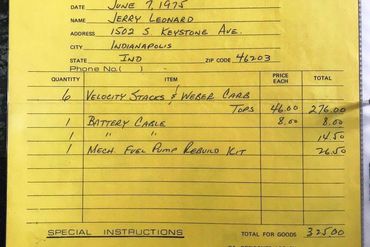 DATE June 7, 1975
NAME Jerry Leonard
ADDRESS 1502 S. Keystone Ave.
CITY Indianapolis
STATE Ind ZIP CODE 46203
Phone No. ( )
QUANTITY ITEM PRICE EACH TOTAL
6 Velocity Stacks & Weber Carb
Tops 46.00 276.00
1 Battery Cable 8.00 8.00
1 " " 14.50
1 Mech. Fuel Pump Rebuild Kit 26.50
SPECIAL INSTRUCTIONS TOTAL FOR GOODS 325.00